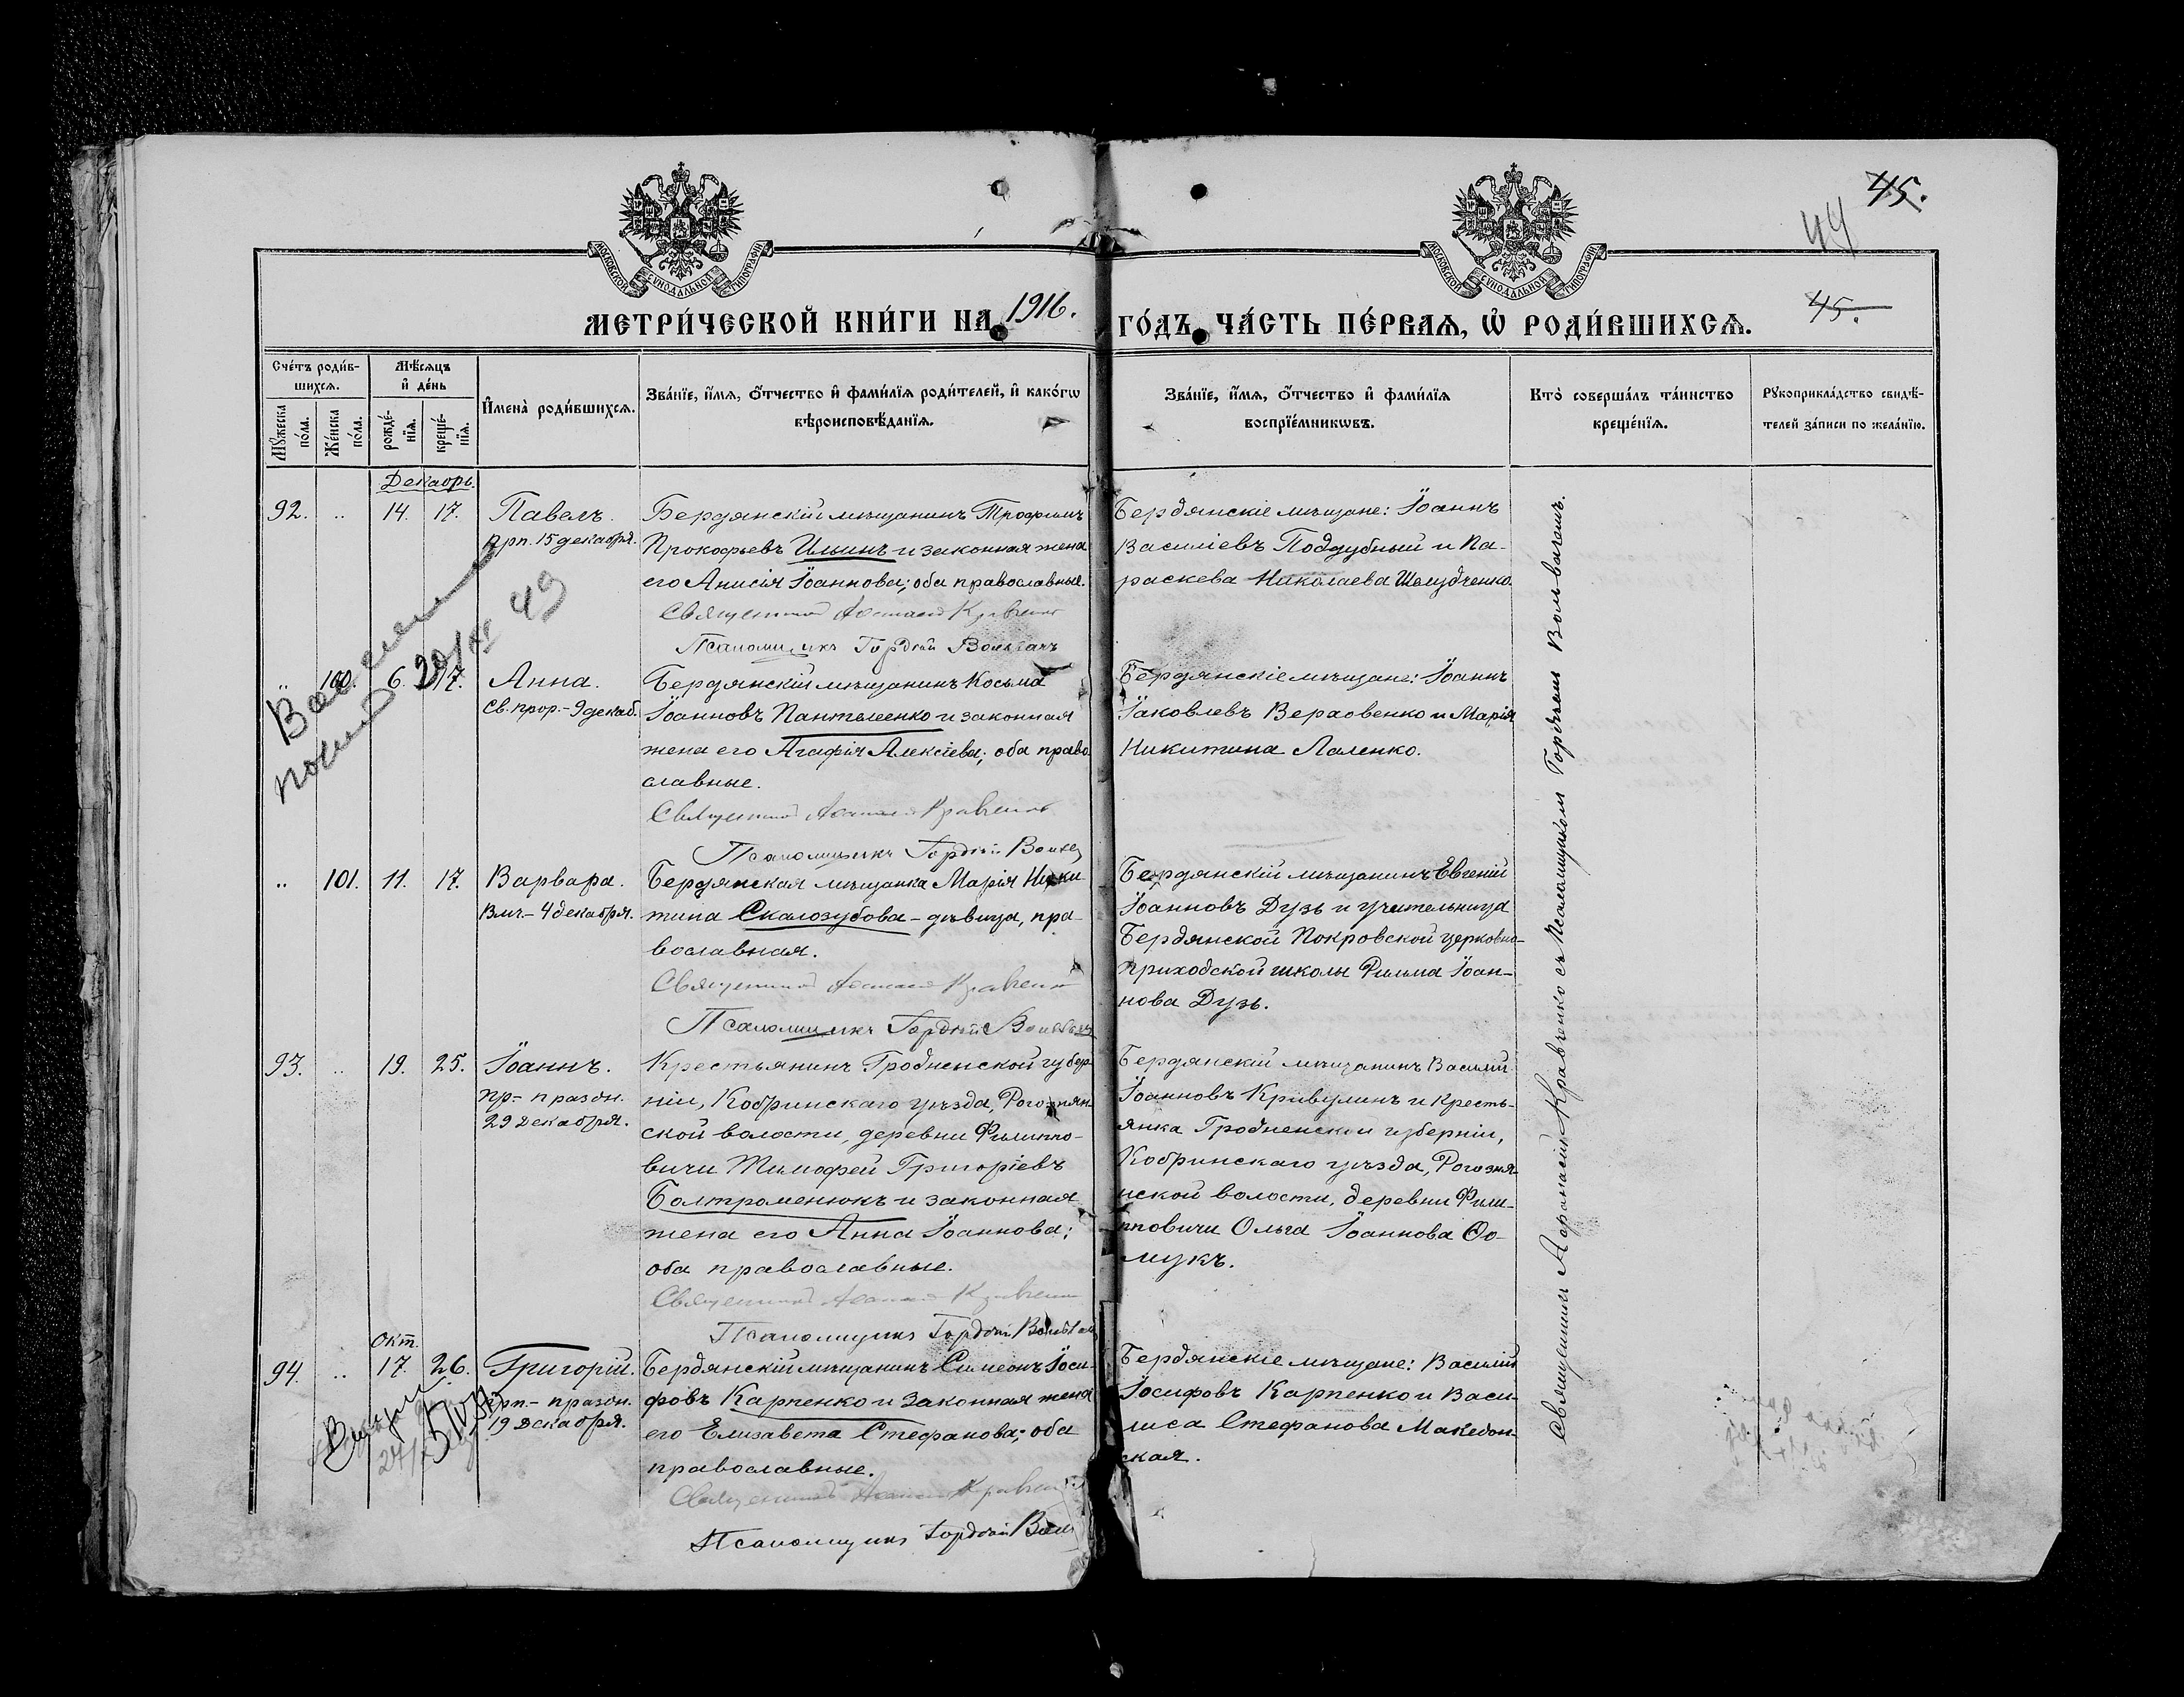 45.
44
МОСКОВСКОЙ СѴНОДАЛЬНОЙ ТИПОГРАФІИ
МОСКОВСКОЙ СѴНОДАЛЬНОЙ ТИПОГРАФІИ
МЕТРИ́ЧЕСКОЙ КНИ́ГИ НА 1916. ГО́ДЪ, ЧА́СТЬ ПЕ́РВАЯ, Ѡ҆ РОДИ́ВШИХСѦ. 45.
Сче́тъ роди́в-
шихсѧ.
Мꙋ́жеска по́ла.
Же́нска по́ла.
Мѣ́сѧцъ и҆ де́нь
рожде́-нїѧ.
креще́-нїѧ.
И҆мена̀ роди́вшихсѧ.
Зва́нїе, и҆́мѧ, ѻ҆́тчество и҆ фами́лїѧ роди́телей, и҆ како́гѡ
вѣроисповѣ́данїѧ.
Зва́нїе, и҆́мѧ, ѻ҆́тчество и҆ фами́лїѧ
воспрїе́мникѡвъ.
Кто̀ соверша́лъ та́инство
креще́нїѧ.
Рꙋкоприкла́дство свидѣ́-
телей за́писи по жела́нїю.
Декабрь.
92. .. 14. 17. Павелъ.
Прп. 15 декабря.
Бердянскій мѣщанинъ Трофимъ
Прокофьевъ Ильинъ и законная жена
его Анисія Іоаннова; оба православные.
Священникъ Аѳанасій Кравченко
Псаломщикъ Гордій Вольвачъ
Бердянскіе мѣщане: Іоаннъ
Василіевъ Поддубный и Па-
раскева Николаева Шелудченко.
49
.. 100. 6. 17. Анна.
Св. прор. - 9 декаб.
Бердянскій мѣщанинъ Косьма
Іоанновъ Пантелеенко и законная
жена его Агафія Алексіева; оба право
славные.
Священникъ Аѳанасій Кравченко
Псаломщикъ Гордій
Бердянскіе мѣщане: Іоаннъ
Іаковлевъ Верховенко и Марія
Никитина Лаленко.
.. 101. 11. 17. Варвара.
Вмч. - 4 декабря.
Бердянская мѣщанка Марія Ники
тина Скалозубова - дѣвица, пра-
вославная.
Священникъ Аѳанасій Кравченко
Псаломщикъ Гордій Вольвачъ
Бердянскій мѣщанинъ Евгеній
Іоанновъ Дузь и учительница
Бердянской Покровской церковно-
приходской школы Римма Іоан-
нова Дузь.
93. .. 19. 25. Іоаннъ.
Пр. - праздн.
29 декабря.
Крестьянинъ Гродненской губер
ніи, Кобринскаго уѣзда, Рогознян-
ской волости, деревни Филиппо-
вичи Тимофей Григоріевъ
Болтроменюкъ и законная
жена его Анна Іоаннова;
оба православные.
Священникъ Аѳанасій Кравченко
Псаломщикъ Гордій Вольвач
Бердянскій мѣщанинъ Василій
Іоанновъ Кривулинъ и кресть-
янка Гродненской губерніи,
Кобринскаго уѣзда, Рогозня-
нской волости, деревни Фили-
пповичи Ольга Іоаннова Ѳо-
мукъ.
Окт.
94. .. 17. 26. Григорій.
Прп. - праздн.
19 декабря.
Бердянскій мѣщанинъ Симеонъ Іоси-
фовъ Карпенко и законная жена
его Елизавета Стефанова; оба
православные.
Священникъ Аѳанасій Кравчен
Псаломщикъ Гордій Вол
Бердянскіе мѣщане: Василій
Іосифовъ Карпенко и Васи-
лиса Стефанова Македон-
ская.
Священникъ Аѳанасій Кравченко съ Псаломщикомъ Гордіемъ Вольвачемъ.